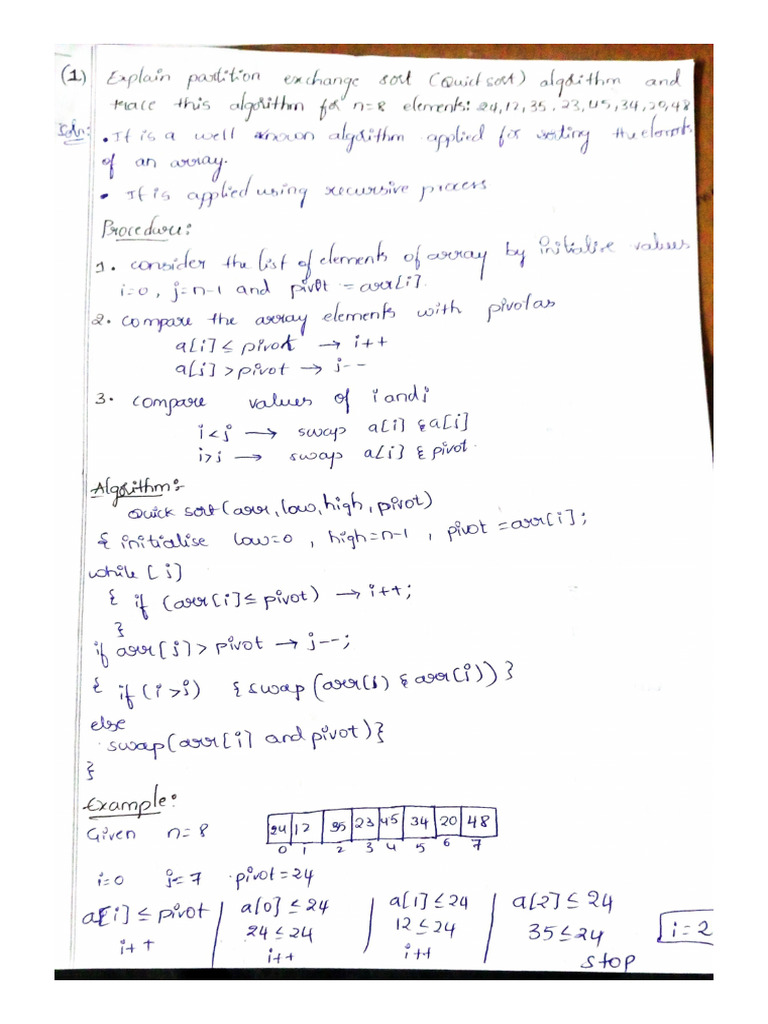 (1) Explain partition exchange sort (Quick sort) algorithm and
trace this algorithm for n=8 elements: 24,12,35,23,45,34,20,48
Soln: • It is a well known algorithm applied for sorting the elements
of an array.
• It is applied using recursive process
Procedure:
1. consider the list of elements of array by initialise values
i=0, j=n-1 and pivot = arr[i].
2. compare the array elements with pivot as
a[i] ≤ pivot → i++
a[j] > pivot → j--
3. compare values of i and j
i<j → swap a[i] & a[j]
i>j → swap a[j] & pivot.
Algorithm:-
Quick sort (arr, low, high, pivot)
{ initialise low=0, high=n-1, pivot = arr[i];
while [j]
{ if (arr[i] ≤ pivot) → i++;
}
if arr[j] > pivot → j--;
{ if (i>j) {swap (arr(j) & arr(i))}
else
swap(arr[i] and pivot)}
}
Example:
Given n=8 24 12 35 23 45 34 20 48
0 1 2 3 4 5 6 7
i=0 j=7 pivot=24
a[i] ≤ pivot a[0] ≤ 24 a[1] ≤ 24 a[2] ≤ 24
i++ 24 ≤ 24 12 ≤ 24 35 ≤ 24 i=2
i++ i++ stop